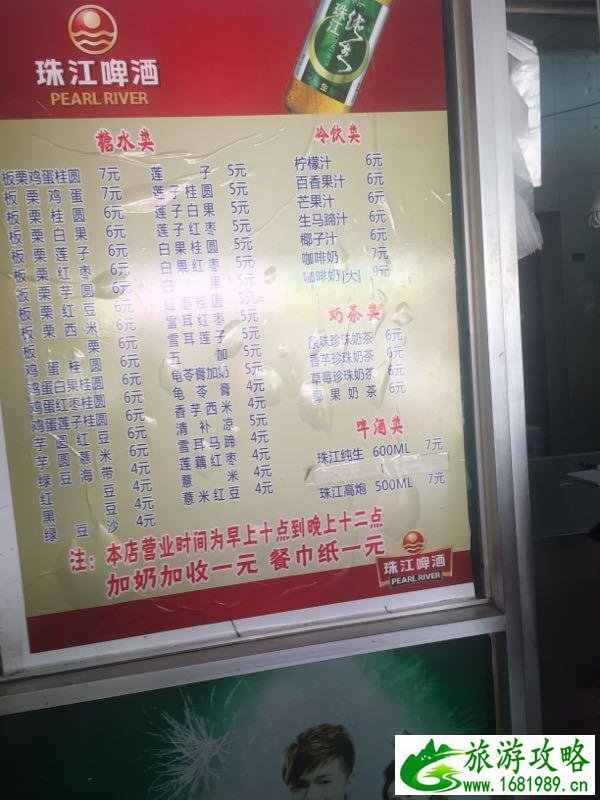 珠江啤酒
PEARL RIVER
珠江纯生
糖水类
板栗鸡蛋桂圆 7元
板栗鸡蛋 7元
板栗桂圆 6元
板栗白果 6元
板栗莲子 6元
板栗红枣 6元
板栗芋圆 6元
板栗红豆 6元
板栗西米 6元
板栗 6元
鸡蛋桂圆 6元
鸡蛋白果 6元
鸡蛋红枣 6元
鸡蛋莲子 6元
绿豆海带 4元
红豆 4元
黑豆 4元
绿豆沙 4元
莲子 5元
莲子桂圆 5元
莲子白果 5元
莲子红枣 5元
白果桂圆 5元
白果红枣 5元
白果 5元
龟苓膏加奶 5元
龟苓膏 4元
香芋西米 4元
清补凉 4元
雪耳马蹄 4元
莲藕红枣 4元
薏米 4元
薏米红豆 4元
冷饮类
柠檬汁 6元
百香果汁 6元
芒果汁 6元
生马蹄汁 6元
椰子汁 6元
咖啡奶 7元
咖啡奶(大) 9元
奶茶类
原味珍珠奶茶 6元
香芋珍珠奶茶 6元
草莓珍珠奶茶 6元
椰果奶茶 6元
啤酒类
珠江纯生 600ML 7元
珠江高炮 500ML 7元
注：本店营业时间为早上十点到晚上十二点
加奶加收一元 餐巾纸一元
珠江啤酒
PEARL RIVER
旅游攻略
www.1681989.cn